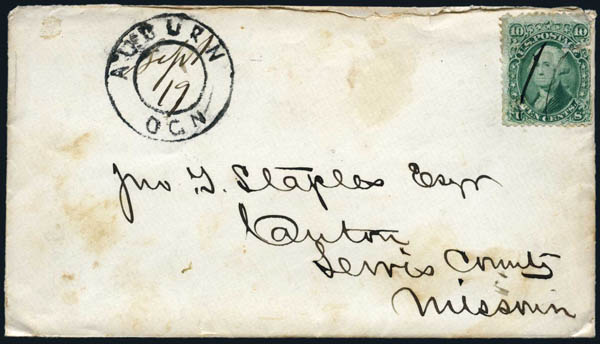 AUBURN
Sept
19
OGN
10 U.S. POSTAGE 10
TEN CENTS
Jno G. Staples Esqr
Canton
Lewis County
Missouri